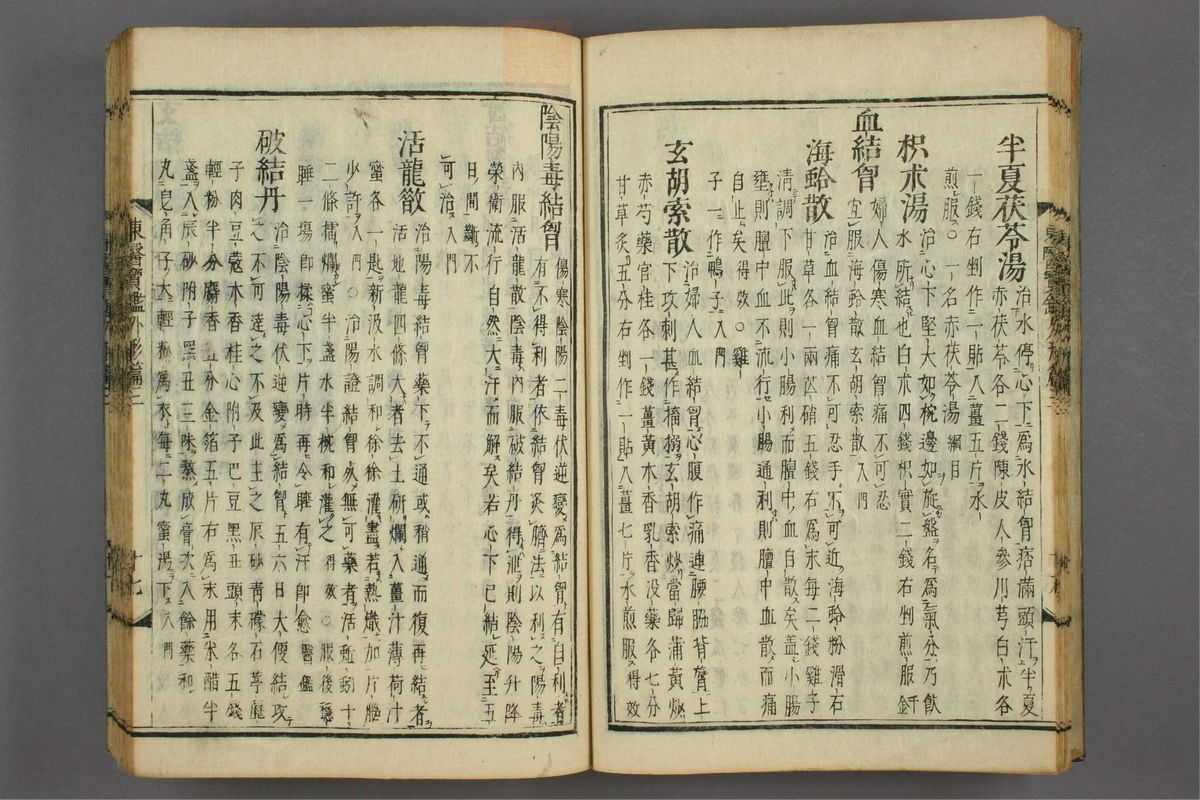 半夏茯苓湯 治水停心下爲水結胷痞滿頭汗半夏
赤茯苓各二錢陳皮人參川芎白朮各
一錢右剉作一貼入薑五片水
煎服○一名赤茯苓湯 綱目
枳朮湯 治心下堅大如椀邊如旋盤名爲氣分乃飮
水所結也白朮四錢枳實二錢右剉煎服
血結胷 婦人傷寒血結胷痛不可忍
宜服海蛤散玄胡索散 入門
海蛤散 治血結胷痛不可忍手不可近海蛤粉滑石
甘草各一兩芒硝五錢右爲末每二錢雞子
淸調下服此則小腸利而膻中血自散矣盖小腸
壅則膻中血不流行小腸通利則膻中血散而痛
自止矣 得效 ○雞
子一作鴨子 入門
玄胡索散 治婦人血結胷心腹作痛連腰脇背膂上
下攻刺甚作搐搦玄胡索炒當歸蒲黃炒
赤芍藥官桂各一錢薑黃木香乳香沒藥各七分
甘草灸五分右剉作一貼入薑七片水煎服 得效
陰陽毒結胷 傷寒陰陽二毒伏逆變爲結胷有自利者
有不得利者依結胷灸臍法以利之陽毒
內服活龍散陰毒內服破結丹得泄則陰陽升降
榮衛流行自然大汗而解矣若心下已結延至五
日間斷不
可治 入門
活龍散 治陽毒結胷藥下不通或稍通而復再結者
活地龍四條大者去土硏爛入薑汁薄荷汁
蜜各一匙新汲水調和徐徐灌盡若熱熾加片腦
少許 入門 ○治陽證結胷以無可藥者活蚯蚓十
二條擂爛蜜半盞水半椀和灌之 得效 ○服後穩
睡一場卽揉心下片時再令睡有汗卽愈 醫鑑
破結丹 治陰陽毒伏逆變爲結胷五六日大便結攻
之不可達之不及此主之辰砂靑礞石葶藶
子肉豆蔲木香桂心附子巴豆黑丑頭末各五錢
輕粉半分麝香五分金箔五片右爲末用米醋半
盞入辰砂附子黑丑三味熬成膏次入餘藥和
丸皂角子大輕粉爲衣每二丸蜜湯下 入門
東醫寶鑑外形篇三